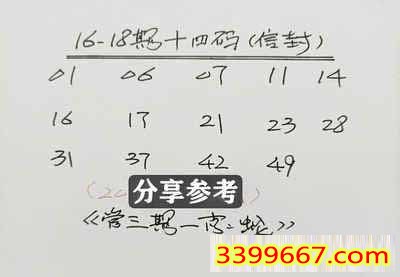 16-18期十四码(信封)
01 06 07 11 14
16 17 21 23 28
31 37 42 49
分享参考
3399667.com